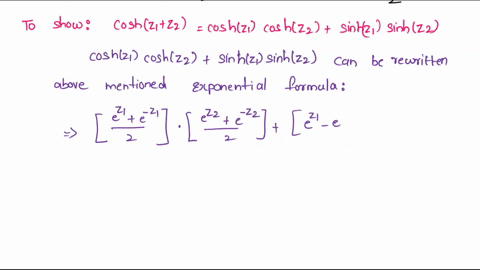 To show: cosh(z1+z2) = cosh(z1) cosh(z2) + sinh(z1) sinh(z2)
cosh(z1) cosh(z2) + sinh(z1) sinh(z2) can be rewritten
above mentioned exponential formula:
⇒ [e^z1 + e^-z1 / 2] · [e^z2 + e^-z2 / 2] + [e^z1 - e